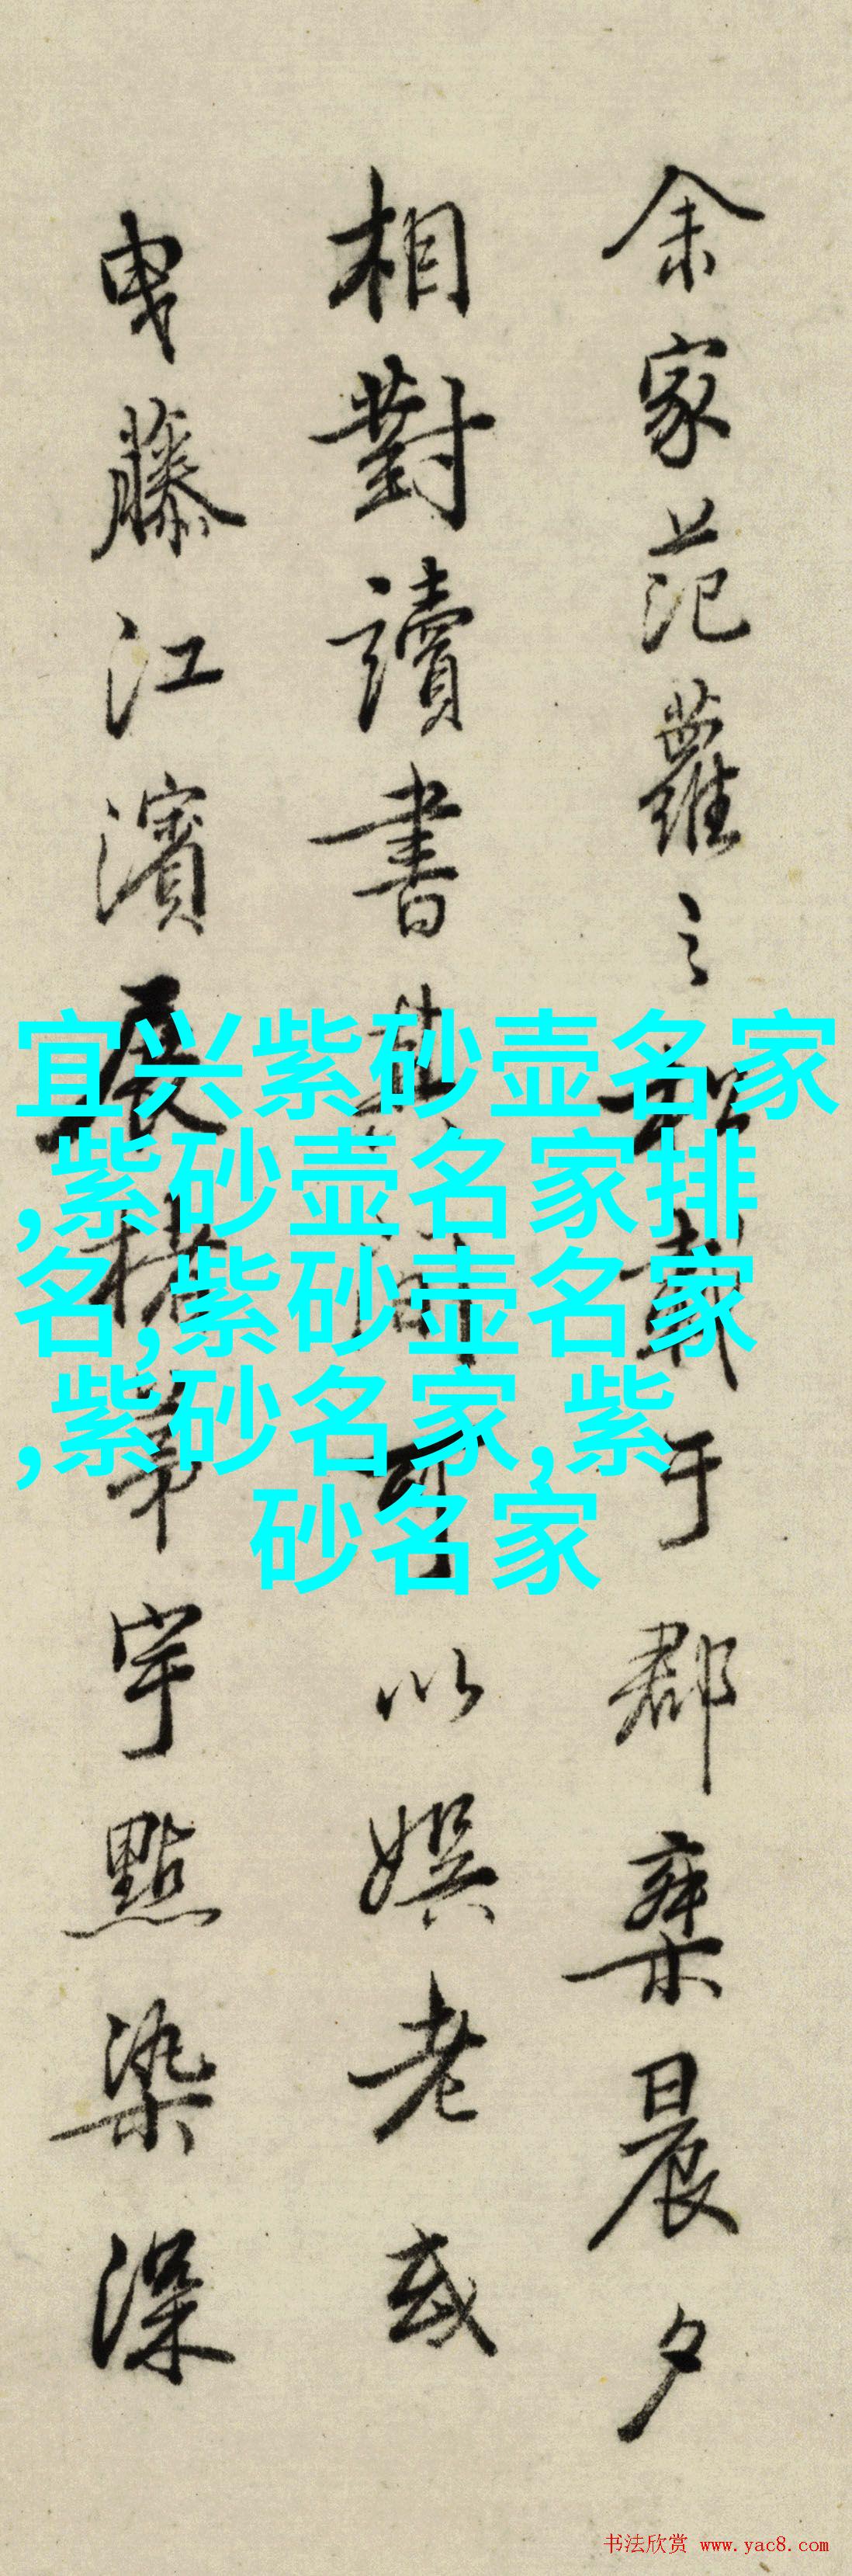 余家范蘿之
于郡桒晨夕
相對讀書
以娯老或
曳藤江濱展楮
宇點染深
宜兴紫砂壶名家
,紫砂壶名家排
名,紫砂壶名家
,紫砂名家,紫
砂名家
书法欣赏 www.yac8.com